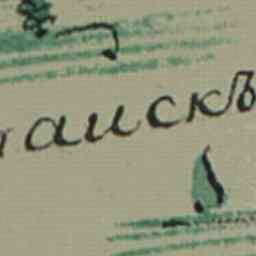 аискъ